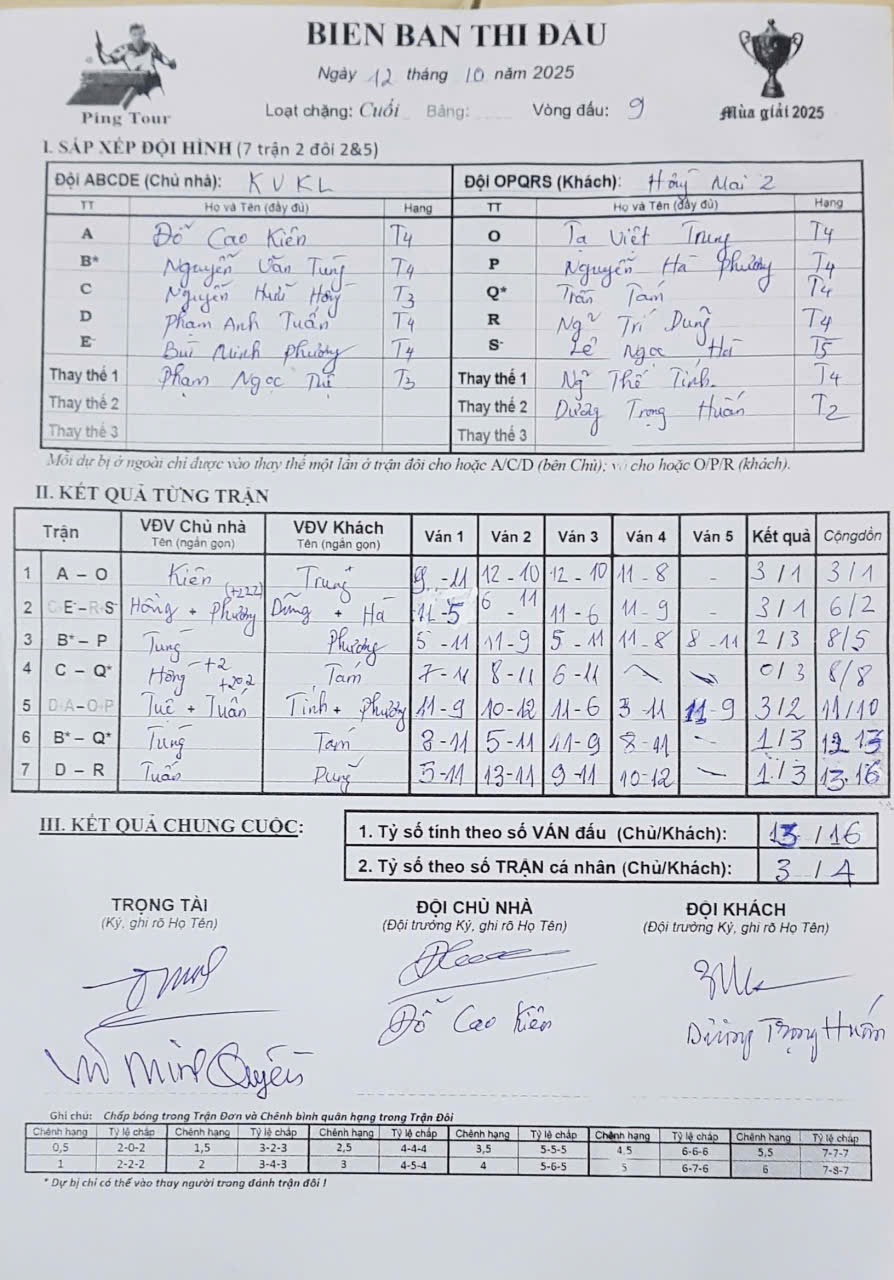 BIÊN BẢN THI ĐẤU
Ngày 12 tháng 10 năm 2025
Ping Tour
Loạt chặng: Cuối Bảng: Vòng đấu: 9
Mùa giải 2025
I. SẮP XẾP ĐỘI HÌNH (7 trận 2 đôi 2&5)
Đội ABCDE (Chủ nhà): KVKL Đội OPQRS (Khách): Hồng Mai 2
TT Họ và Tên (đầy đủ) Hạng TT Họ và Tên (đầy đủ) Hạng
A Đỗ Cao Kiên T4 O Tạ Việt Trung T4
B* Nguyễn Văn Tùng T4 P Nguyễn Hà Phương T4
C Nguyễn Hữu Hồng T3 Q* Trần Tám T4
D Phạm Anh Tuấn T4 R Ngũ Trí Dũng T4
E- Bùi Minh Phương T4 S- Lê Ngọc Hà T5
Thay thế 1 Phạm Ngọc T3 Thay thế 1 Ngũ Thế Tính T4
Thay thế 2 Thay thế 2 Dương Trọng Huấn T2
Thay thế 3 Thay thế 3
Mỗi dự bị ở ngoài chỉ được vào thay thế một lần ở trận đôi cho hoặc A/C/D (bên Chủ); và cho hoặc O/P/R (khách).
II. KẾT QUẢ TỪNG TRẬN
Trận VĐV Chủ nhà Tên (ngắn gọn) VĐV Khách Tên (ngắn gọn) Ván 1 Ván 2 Ván 3 Ván 4 Ván 5 Kết quả Cộng dồn
1 A – O Kiên Trung 9-11 12-10 12-10 11-8 - 3/1 3/1
2 C E- – R S- Hồng + Phương (+222) Dũng + Hà 11-5 6-11 11-6 11-9 - 3/1 6/2
3 B* – P Tùng Phương 5-11 11-9 5-11 11-8 8-11 2/3 8/5
4 C – Q* Hồng +2 +202 Tám 7-11 8-11 6-11 0/3 8/8
5 D A – O P Tuệ + Tuấn Tính + Phương 11-9 10-12 11-6 3-11 11-9 3/2 11/10
6 B* – Q* Tùng Tám 3-11 5-11 11-9 8-11 - 1/3 12 13
7 D – R Tuấn Dũng 5-11 13-11 9-11 10-12 - 1/3 13.16
III. KẾT QUẢ CHUNG CUỘC:
1. Tỷ số tính theo số VÁN đấu (Chủ/Khách): 13 / 16
2. Tỷ số theo số TRẬN cá nhân (Chủ/Khách): 3 / 4
TRỌNG TÀI ĐỘI CHỦ NHÀ ĐỘI KHÁCH
(Ký, ghi rõ Họ Tên) (Đội trưởng Ký, ghi rõ Họ Tên) (Đội trưởng Ký, ghi rõ Họ Tên)
Đỗ Cao Kiên
Dương Trọng Huấn
Vũ Minh Quyền
Ghi chú: Chấp bóng trong Trận Đơn và Chênh bình quân hạng trong Trận Đôi
Chênh hạng Tỷ lệ chấp Chênh hạng Tỷ lệ chấp Chênh hạng Tỷ lệ chấp Chênh hạng Tỷ lệ chấp Chênh hạng Tỷ lệ chấp Chênh hạng Tỷ lệ chấp
0,5 2-0-2 1,5 3-2-3 2,5 4-4-4 3,5 5-5-5 4,5 6-6-6 5,5 7-7-7
1 2-2-2 2 3-4-3 3 4-5-4 4 5-6-5 5 6-7-6 6 7-8-7
* Dự bị chỉ có thể vào thay người trong đánh trận đôi !